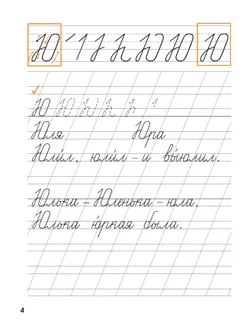 Ю Ю Ю Ю
Ю Ю Ю
Юля Юра
Юли́л, юли́л – и вы́юлил.
Юлька – Юленька – юла,
Юлька ю́ркая была.
4